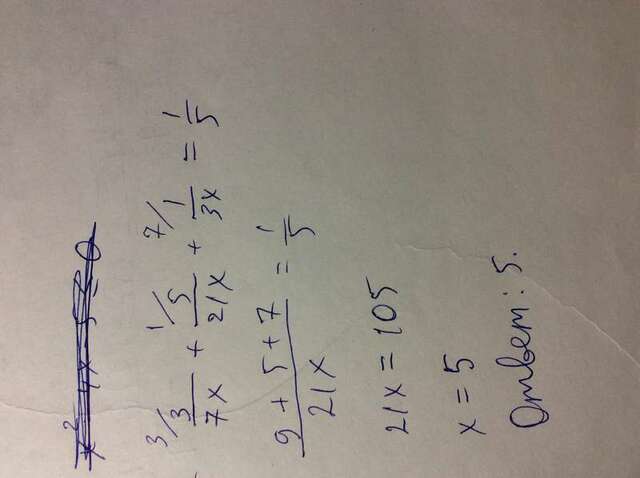 x² 4x - 5 ≤ 0
3/ 3/7x + 1/ 5/21x + 7/ 1/3x = 1/5
9 + 5 + 7 / 21x = 1/5
21x = 105
x = 5
Ответ: 5.